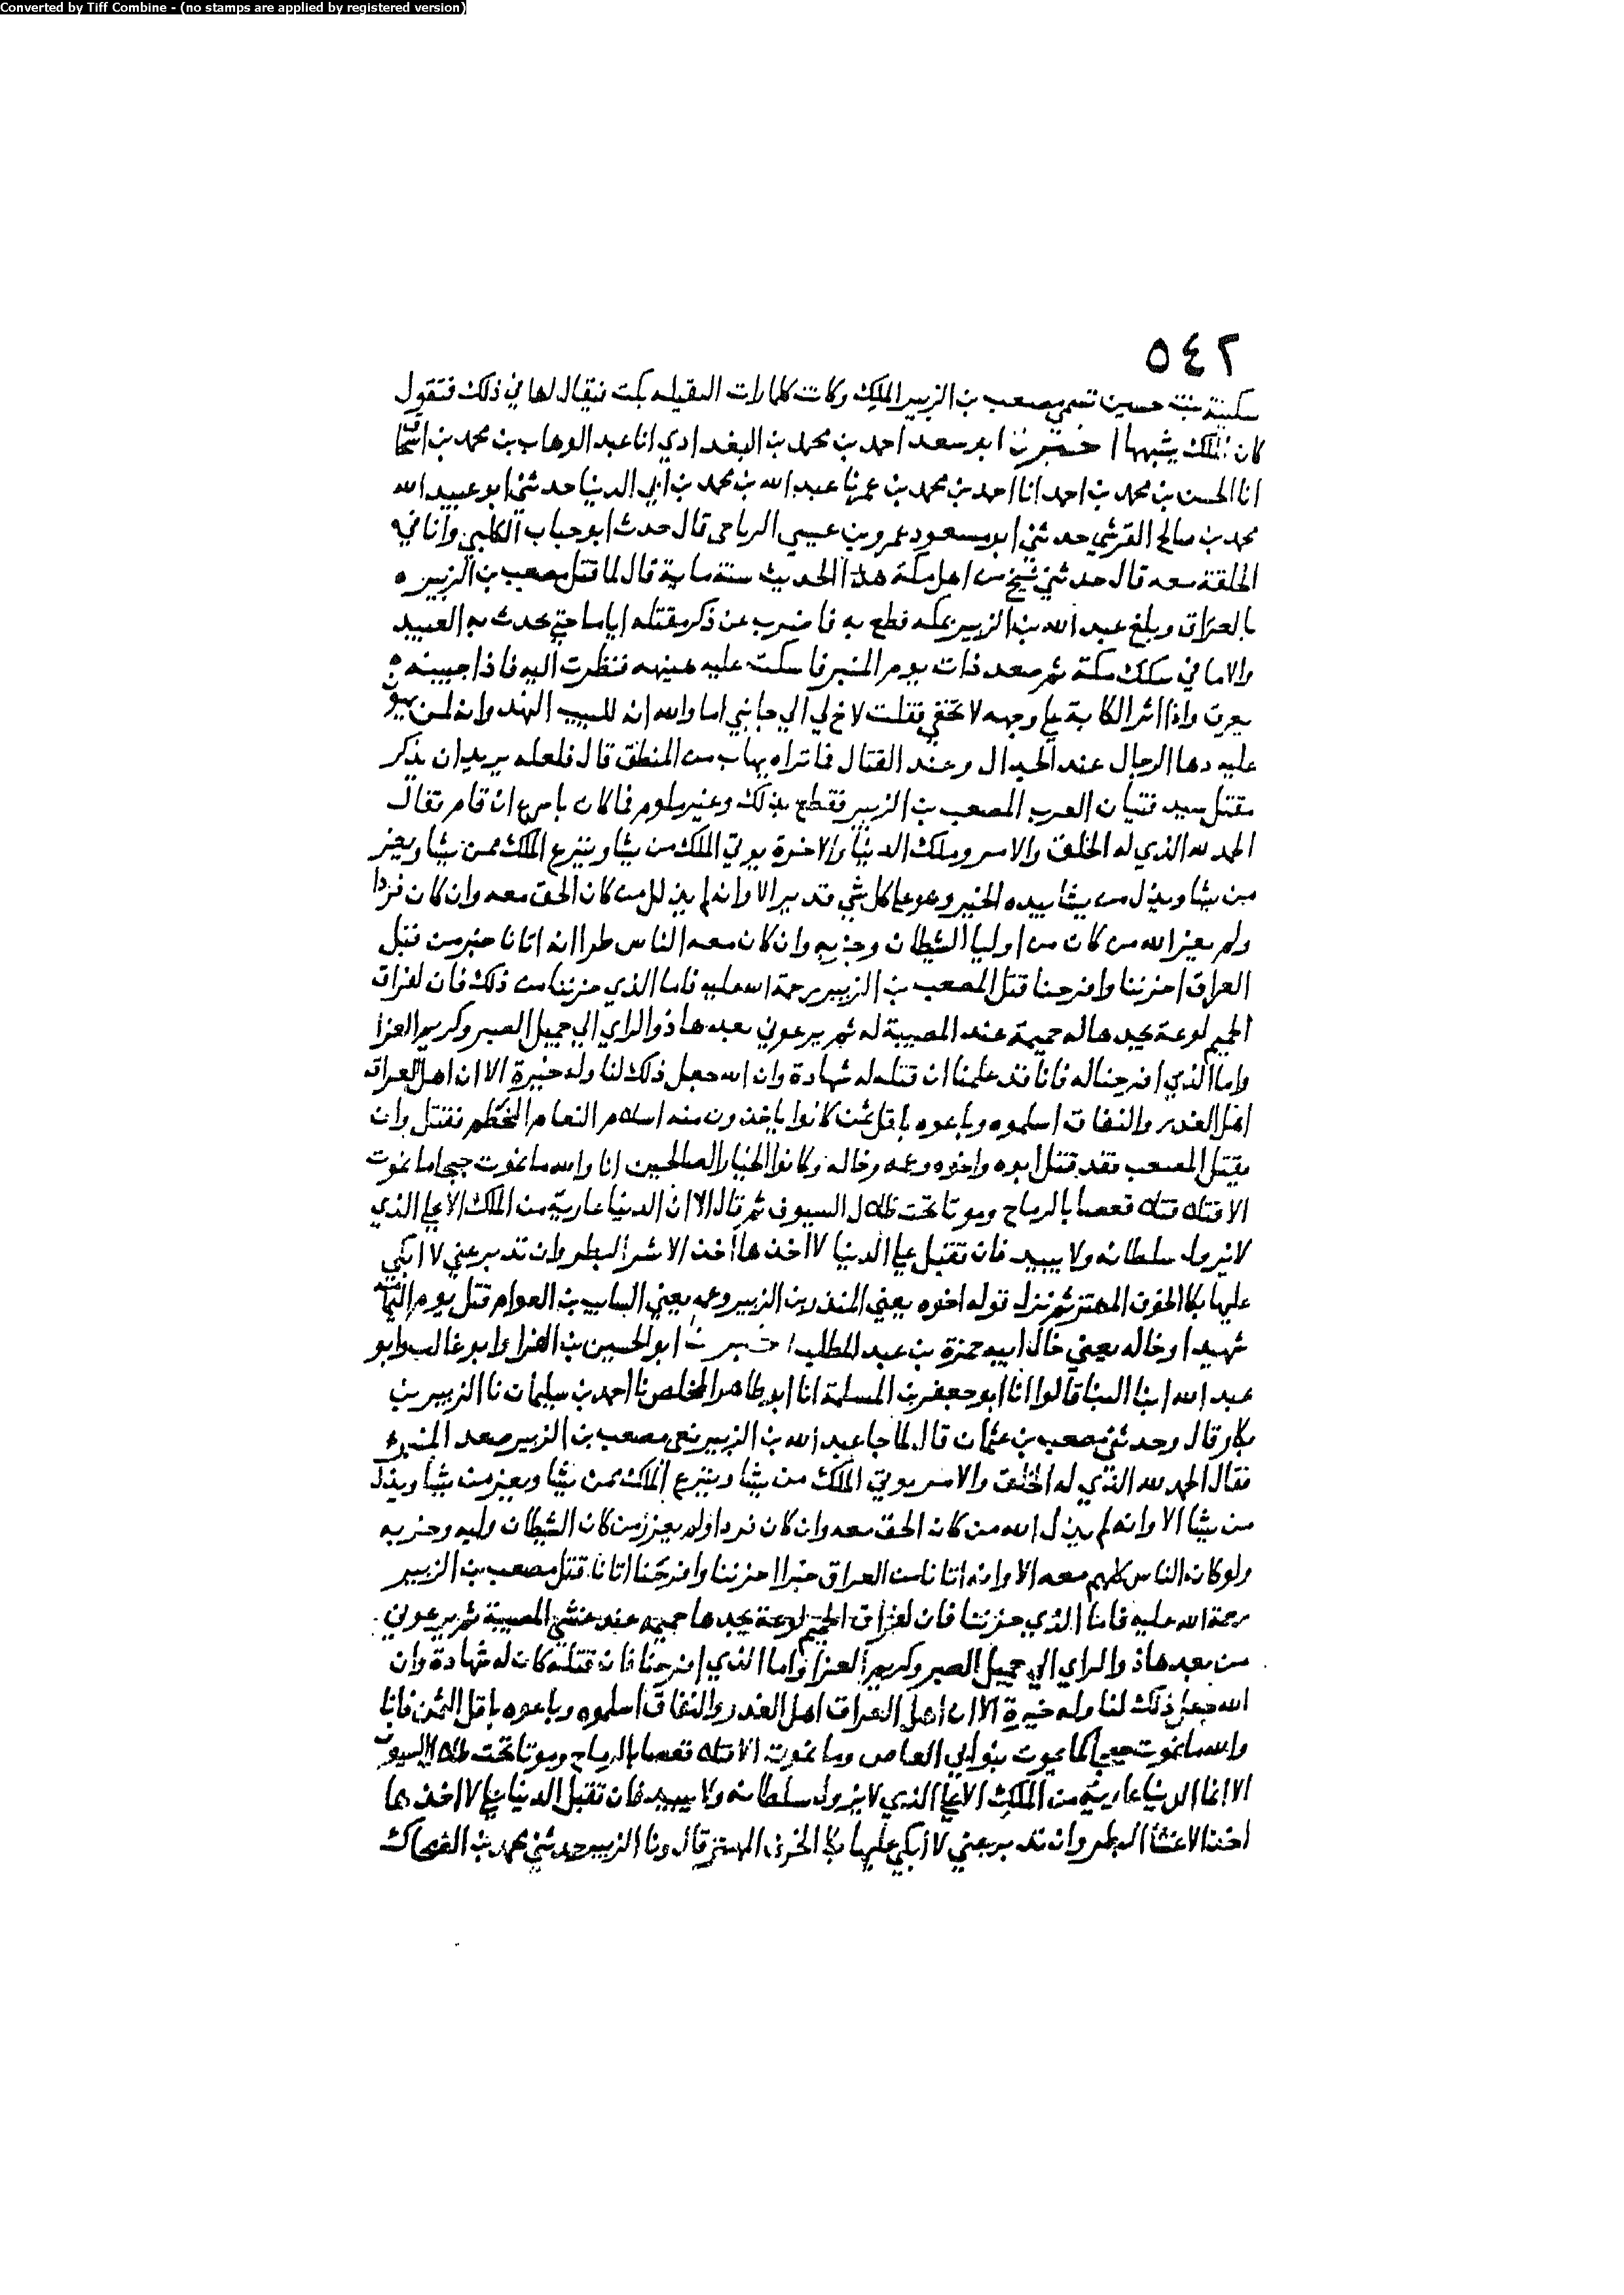 Converted by Tiff Combine - (no stamps are applied by registered version)
٥٤٢
سكينة بنت حسين تسمي مصعب بن الزبير الملك وكانت كلما رات البقيله بكت فيقال لها في ذلك فتقول
كان الملك يشبهها اخبرنا ابو سعد احمد بن محمد بن البغدادي انا عبد الوهاب بن محمد بن اسحاق
انا الحسن بن محمد بن احمد انا احمد بن محمد بن عمر نا عبد الله بن محمد بن ابي الدنيا حدثني ابو عبيد الله
محمد بن صالح القرشي حدثني ابو مسعود عمرو بن عيسى الرياحي قال حدث ابو حباب الكلبي وانا في
الحلقة معه قال حدثني شيخ من اهل مكة هذا الحديث سنة ماية قال لما قتل مصعب بن الزبير ه
بالعراق وبلغ عبد الله بن الزبير بمكه فطع به فاضرب عن ذكر مقتله اياما حتي يحدث به العبيد
والاما في سكك مكة ثم صعد ذات يوم المنبر فاسكت عليه هنيهه فنظرت اليه فاذا جبينه ه
يعرق واذا اثر الكابة علي وجهه لا تخفي فقلت لاخ لي الي جانبي اما والله انه للبيب النهد وانه لمن يهون
عليه دها الرجال عند الجدال وعند القتال فما تراه يهاب من المنطق قال فلعله يريد ان يذكر
مقتل سيد فتيان العرب المصعب بن الزبير فقطع بذلك وغير ملوم فما كان باسرع ان قام فقال
الحمد لله الذي له الخلق والامر وملك الدنيا والاخرة يوتي الملك من يشا وينزع الملك ممن يشا ويعز
من يشا ويذل من يشا بيده الخير وهو علي كل شي قدير الا وانه لم يذلل من كان الحق معه وان كان فردا
ولم يعز الله من كان من اوليا الشيطان وحزبه وان كان معه الناس طرا انه اتانا خبر من قبل
العراق احزننا وافرحنا قتل المصعب بن الزبير رحمة الله عليه فاما الذي حزننا من ذلك فان لفراق
الحميم لوعة يجدها له حميمة عند المصيبة له ثم يرعوي بعدها ذو الراي الي جميل الصبر وكريم العزا
واما الذي افرحنا له فانا قد علمنا ان قتله له شهادة وان الله جعل ذلك لنا وله خيرة الا ان اهل العراق
اهل الغدر والنفاق اسلموه وباعوه باقل ثمن كانوا ياخذون منه اسلام النعام المخطم فقتل وان
يقتل المصعب فقد قتل ابوه واخوه وعمه وخاله وكانوا الخيار الصالحين انا والله ما نموت حبجا ما نموت
الا قتلا قتلا قعصا بالرماح وموتا تحت ظلال السيوف ثم قال الا ان الدنيا عارية من الملك الاعلي الذي
لا يزول سلطانه ولا يبيد فان تقبل علي الدنيا لا اخذها اخذ الاشر البطر وان تدبر عني لا ابكي
عليها بكا الخرق المهتز ثم نزل قوله اخوه يعني المنذر بن الزبير وعمه يعني السايب بن العوام قتل يوم اليمامة
شهيدا وخاله يعني خال ابيه حمزة بن عبد المطلب اخبرنا ابو الحسين بن الفرا وابو غالب وابو
عبد الله ابنا البنا قالوا انا ابو جعفر بن المسلمة انا ابو طاهر المخلص نا احمد بن سليمان نا الزبير بن
بكار قال وحدثني مصعب بن عثمان قال لما جا عبد الله بن الزبير نعي مصعب بن الزبير صعد المنبر
فقال الحمد لله الذي له الخلق والامر يوتي الملك من يشا وينزع الملك ممن يشا ويعز من يشا ويذل
من يشا الا وانه لم يذل الله من كان الحق معه وان كان فردا ولم يعزز من كان الشيطان وليه وحزبه
ولو كان الناس كلهم معه الا وانه اتانا من العراق خبرا احزننا وافرحنا اتانا قتل مصعب بن الزبير
رحمة الله عليه فاما الذي حزننا فان لفراق الحميم لوعة يجدها حميمه عند المصيبة ثم يرعوي
من بعدها ذو الراي الي جميل الصبر وكريم العزا واما الذي افرحنا فان قتله كان له شهادة وان
الله جعل ذلك لنا وله خيرة الا ان اهل العراق اهل الغدر والنفاق اسلموه وباعوه باقل الثمن فانا
والله ما نموت حبجا كما يموت بنو ابي العاص وما نموت الا قتلا قعصا بالرماح وموتا تحت ظلال السيوف
الا انما الدنيا عارية من الملك الاعلي الذي لا يزول سلطانه ولا يبيد فان تقبل الدنيا علي لا اخذها
اخذ البطر وان تدبر عني لا ابكي عليها بكا الخرق المهتز قال ونا الزبير حدثني محمد بن الضحاك